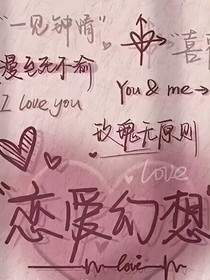 "一见钟情"
"喜
漫至死不渝
You & me →
I love you
玫瑰无原则
Love
"恋爱幻想"
love